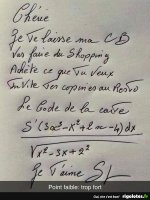 Chérie
Je Te laisse ma CB
Vas faire du Shopping
Achète ce que Tu veux
Invite Tes copines au Resto
Le Code de la carte
(3x³-x²+2x-4)dx
√x²-3x+2²
Je T'aime
Point faible: trop fort
rigolotes.fr